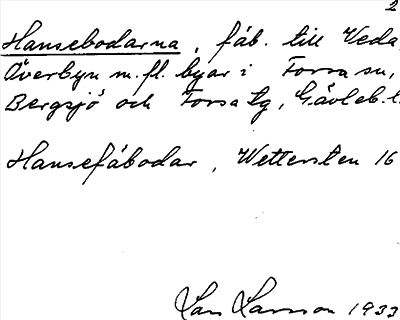 2
Hansebodarna, fäb. till Veda,
Överbyn m.fl. byar i Forsa sn,
Bergsjö och Forsa tg, Gävleb. l.
Hansefäbodar, Wettersten 16
Lars Larsson 1933